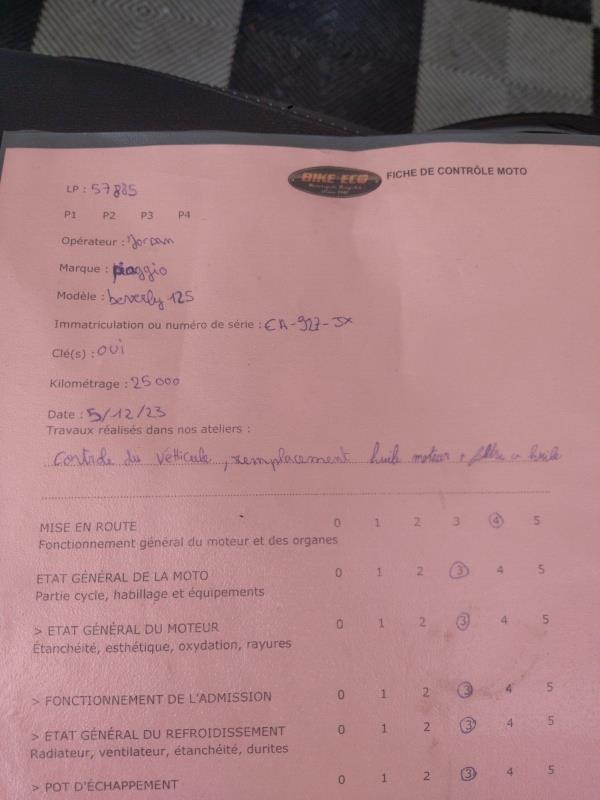 BIKE-ECO
FICHE DE CONTRÔLE MOTO
LP : 57885
P1 P2 P3 P4
Opérateur : Jordan
Marque : piaggio
Modèle : beverly 125
Immatriculation ou numéro de série : EA-927-JX
Clé(s) : OUI
Kilométrage : 25 000
Date : 5/12/23
Travaux réalisés dans nos ateliers :
controle du véhicule, remplacement huile moteur + filtre a huile
MISE EN ROUTE 0 1 2 3 4 5
Fonctionnement général du moteur et des organes
ETAT GÉNÉRAL DE LA MOTO 0 1 2 3 4 5
Partie cycle, habillage et équipements
> ETAT GÉNÉRAL DU MOTEUR 0 1 2 3 4 5
Étanchéité, esthétique, oxydation, rayures
> FONCTIONNEMENT DE L'ADMISSION 0 1 2 3 4 5
> ETAT GÉNÉRAL DU REFROIDISSEMENT 0 1 2 3 4 5
Radiateur, ventilateur, étanchéité, durites
> POT D'ÉCHAPPEMENT 0 1 2 3 4 5